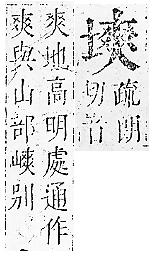 塽
疏朗
切音
爽地高明處通作
爽與山部別